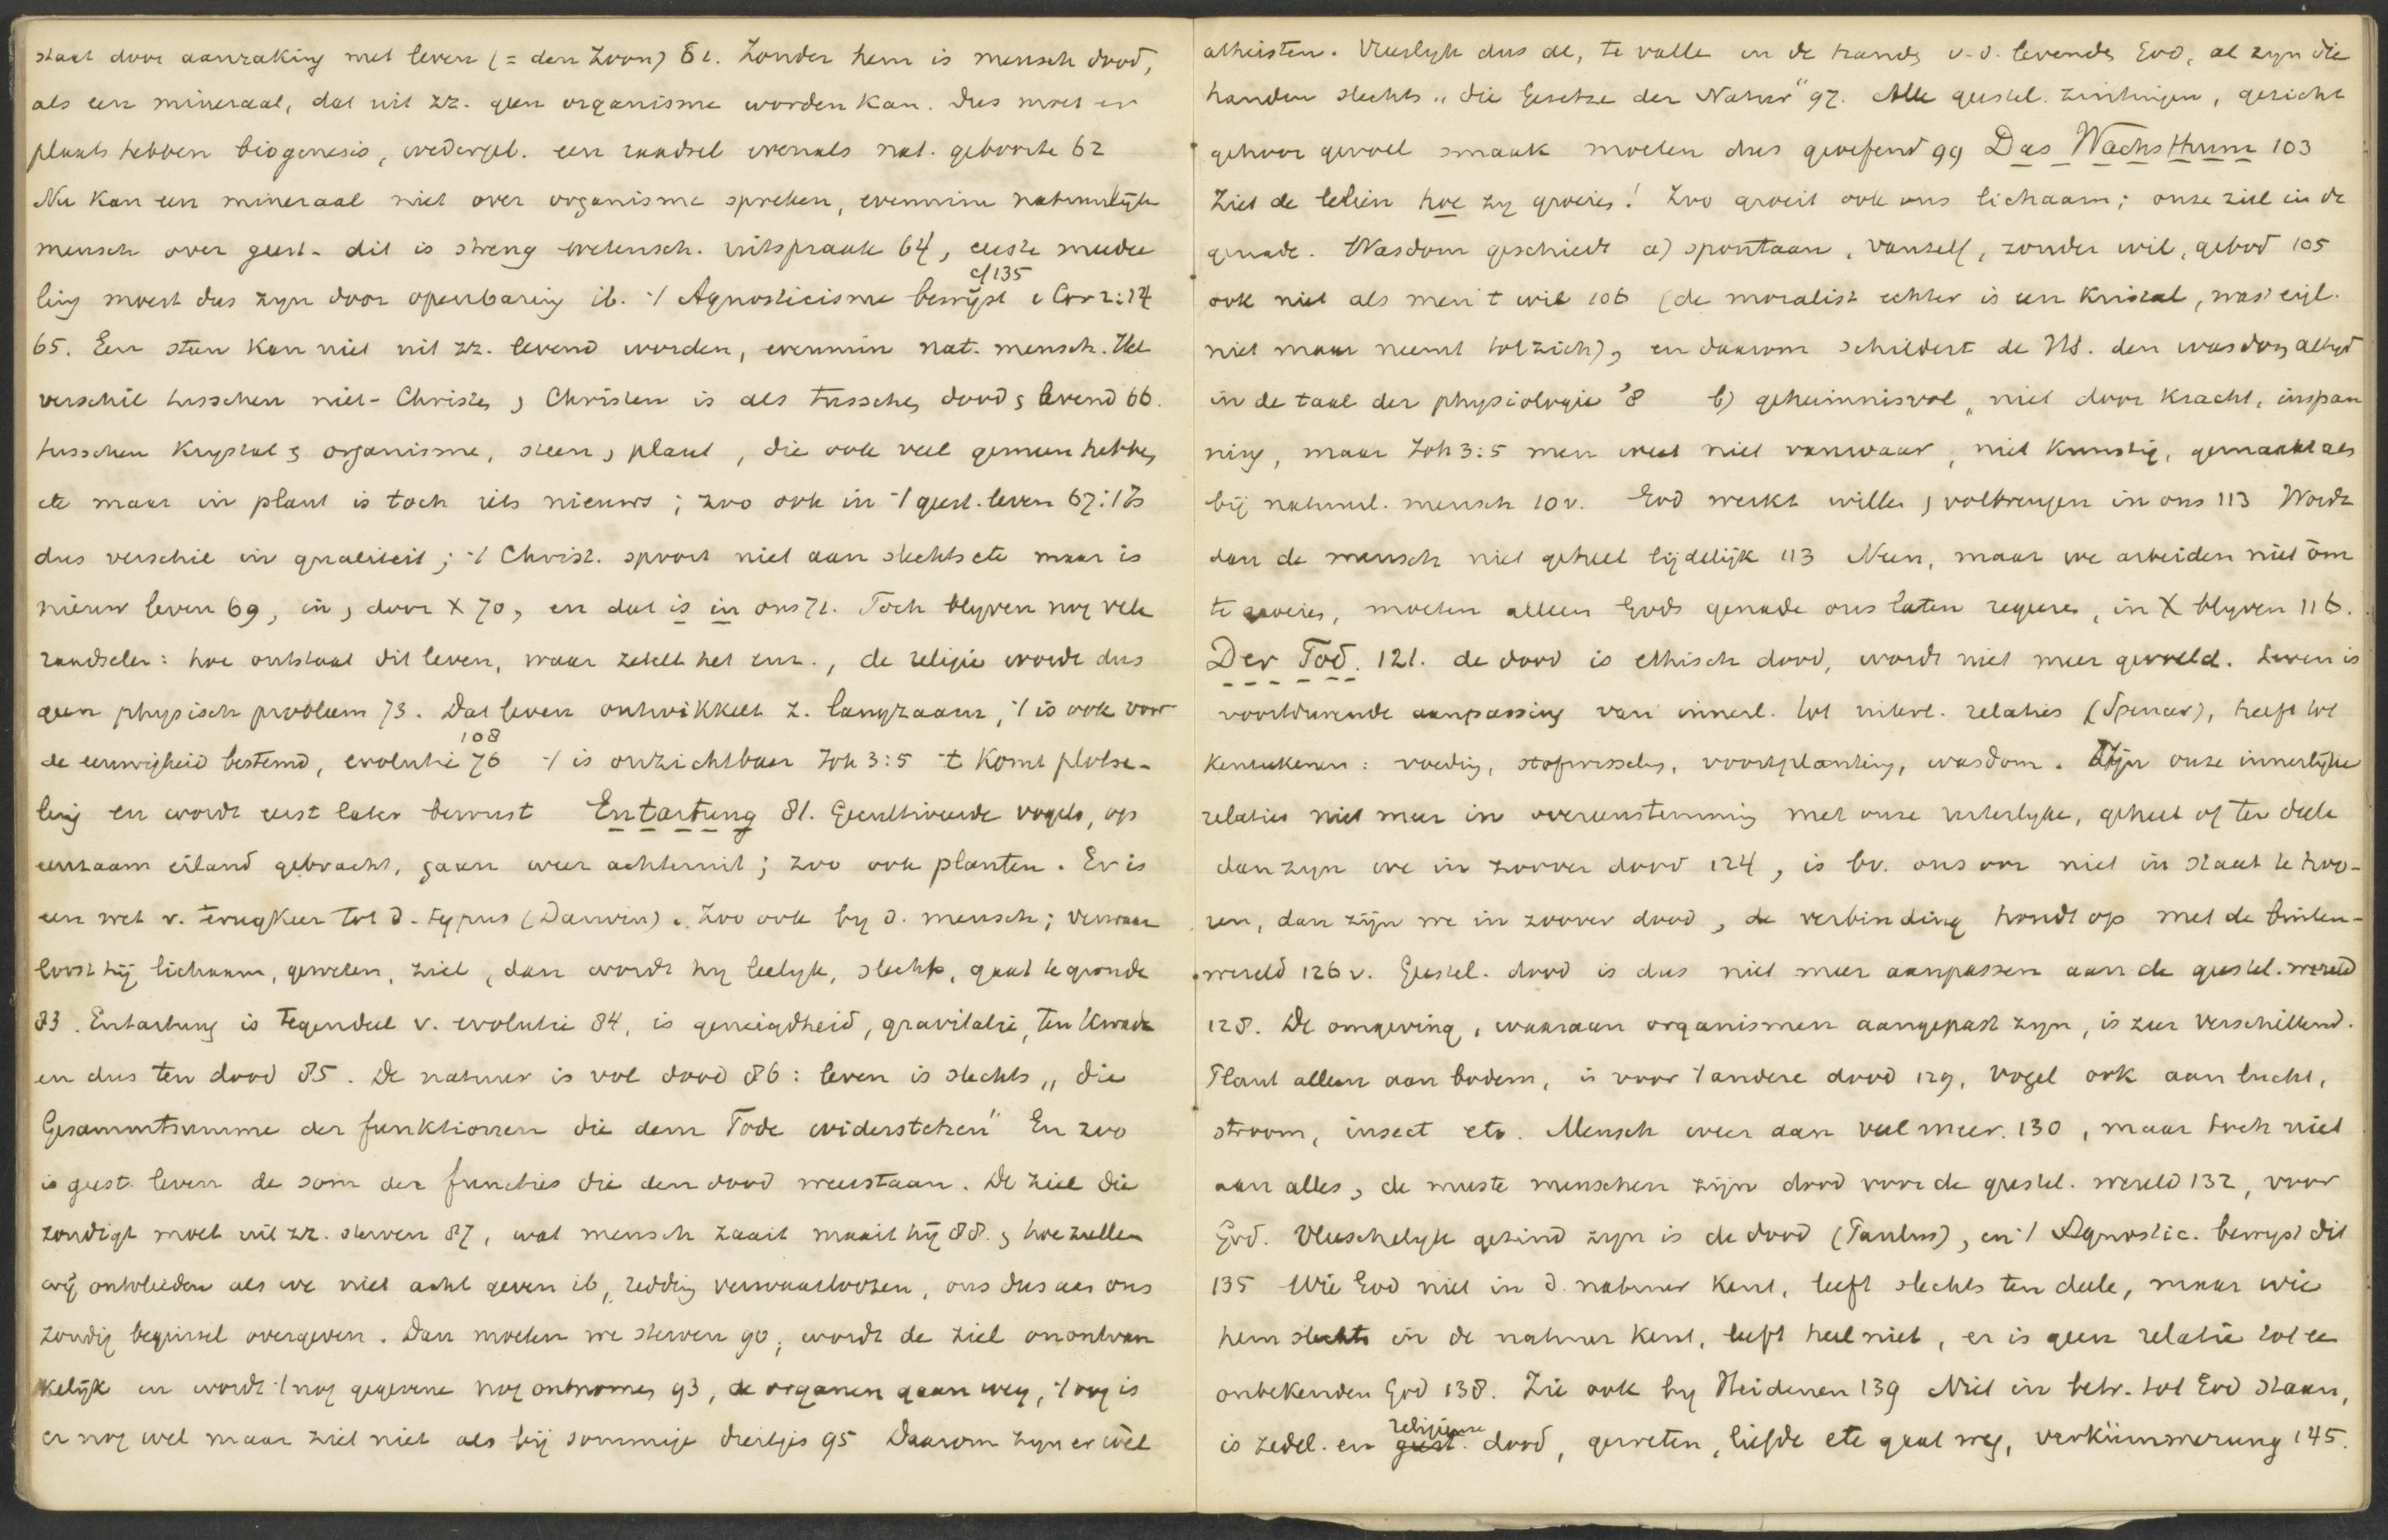 staat door aanraking met leven (= den Zoon) 61. Zonder hem is mensch dood,
als een mineraal, dat uit zz. geen organisme worden kan. Dus moet er
plaats hebben biogenesis, wedergeb. een raadsel evenals nat. geboorte 62
Nu kan een mineraal niet over organisme spreken, evenmin natuurlijke
mensch over geest - dit is streng wetensch. uitspraak 64, eerste meedee
cf 135
ling moest dus zyn door openbaring ib. 't Agnosticisme bewijst 1 Cor 2:14
65. Een steen kan niet uit zz. levend worden, evenmin nat. mensch. Het
verschil tusschen niet-Christen, Christen is als tusschen dood, levend 66.
tusschen krystal, organisme, steen, plant, die ook veel gemeen hebben,
etc maar in plant is toch iets nieuws; zoo ook in 't geest. leven 67: 't is
dus verschil in qualiteit; 't Christ. spoort niet aan slechts etc maar is
nieuw leven 69, in, door X 70, en dat is in ons 71. Toch blyven nog vele
raadselen: hoe ontstaat dit leven, waar zetelt het enz., de religie wordt dus
geen physisch probleem 73. Dat leven ontwikkelt z. langzaam, 't is ook voor
108
de eeuwigheid bestemd, evolutie 76 't is onzichtbaar Joh 3:5 't komt plotse-
ling en wordt eerst later bewust Entartung 81. Gecultiveerde vogels, op
eenzaam eiland gebracht, gaan weer achteruit; zoo ook planten. Er is
een wet v. terugkeer tot d. typus (Darwin). Zoo ook by d. mensch; verwaar
loost hij lichaam, geweten, ziel, dan wordt hy leelyk, slecht, gaat te gronde
83. Entartung is tegendeel v. evolutie 84, is geneigdheid, gravitatie, ten kwade
en dus ten dood 85. De natuur is vol dood 86: leven is slechts „die
Gesammtsumme der funktionen die dem Tode widerstehen" En zoo
is geest. leven de som der functies die den dood weerstaan. De ziel die
zondigt moet uit zz. sterven 87, wat mensch zaait maait hij 88. , hoe zullen
wij ontvlieden als we niet acht geven ib, redding verwaarloozen, ons dus aan ons
zondig beginsel overgeven. Dan moeten we sterven 90, wordt de ziel onontvan
kelijk en wordt 't nog gegevene nog ontnomen 93, de organen gaan weg, 't oog is
er nog wel maar ziet niet als bij sommige diertjes 95 Daarom zyn er wèl
atheisten. Vreeslyk dus de, te valle in de handen v. d. levenden God, al zyn die
handen slechts „die Gesetze der Natur" 97. Alle geestel. zintuigen, gezicht
gehoor gevoel smaak moeten dus geoefend 99 Das Wachsthum 103
Ziet de leliën hoe zy groeien! Zoo groeit ook ons lichaam; onze ziel in de
genade. Wasdom geschiedt a) spontaan, vanzelf, zonder wil, gebod 105
ook niet als men 't wil 106 (de moralist echter is een kristal, wast eigl.
niet maar neemt tot zich), en daarom schildert de HS. den wasdom altyd
in de taal der physiologie '8 b) geheimnisvol, niet door kracht, inspan
ning, maar Joh 3:5 men weet niet vanwaar, niet kunstig, gemaakt als
bij natuurl. mensch 10v. God werkt willen, volbrengen in ons 113 Wordt
dan de mensch niet geheel lijdelijk 113 Neen, maar we arbeiden niet òm
te groeien, moeten alleen Gods genade ons laten regeren, in X blyven 116.
Der Tod. 121. de dood is ethisch dood, wordt niet meer gevoeld. Leven is
voortdurende aanpassing van innerl. tot uiterl. relaties (Spencer), heeft tot
kenteekenen: voeding, stofwisseling, voortplanting, wasdom. Zijn onze innerlijke
relaties niet meer in overeenstemming met onze uiterlyke, geheel of ten deele
dan zyn we in zoover dood 124, is bv. ons oor niet in staat te hoo-
ren, dan zijn we in zoover dood, de verbinding houdt op met de buiten-
wereld 126 v. Geestel. dood is dus niet meer aanpassen aan de geestel. wereld
128. De omgeving, waaraan organismen aangepast zyn, is zeer verschillend.
Plant alleen aan bodem, is voor 't andere dood 129, vogel ook aan lucht,
stroom, insect etc. Mensch weer aan veel meer. 130, maar toch niet
aan alles, de meeste menschen zijn dood voor de geestel. wereld 132, voor
God. Vleeschelyk gezind zyn is de dood (Paulus), en 't Agnostic. bewyst dit
135 Wie God niet in d. natuur kent, leeft slechts ten deele, maar wie
hem slechts in de natuur kent, leeft heel niet, er is geen relatie tot een
onbekenden God 138. Zie ook by Heidenen 139 Niet in betr. tot God staan,
religieuse
is zedel. en geest. dood, geweten, liefde etc gaat weg, verkümmerung 145.